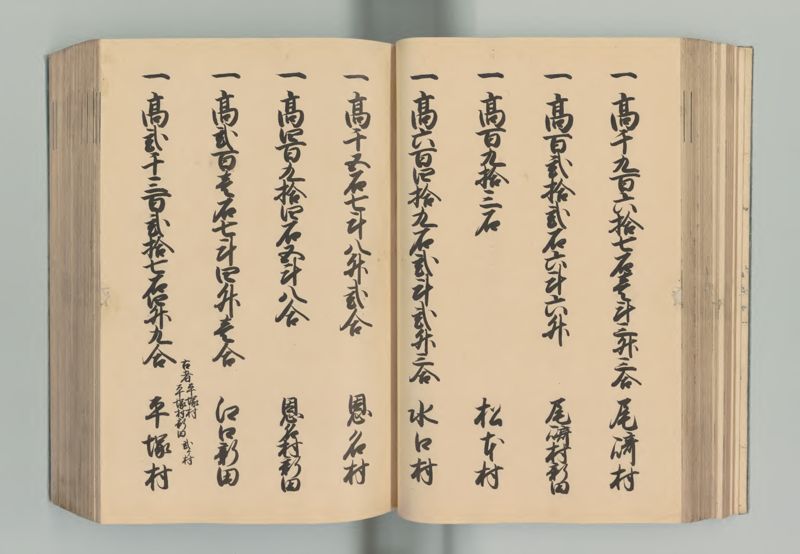 一高千九百六拾七石壱斗三升三合 尾﨑村
一高百弐拾弐石六斗六升 尾﨑村新田
一高百九拾三石 松本村
一高六百四拾九石弐斗弐升三合 水口村
一高千五石七斗八升弐合 恩名村
一高四百九拾四石五斗八合 恩名村新田
一高弐百壱石七斗四升壱合 江口新田
古者平塚村
平塚村新田 弐ケ村
一高弐千三百弐拾七石四升九合 平塚村